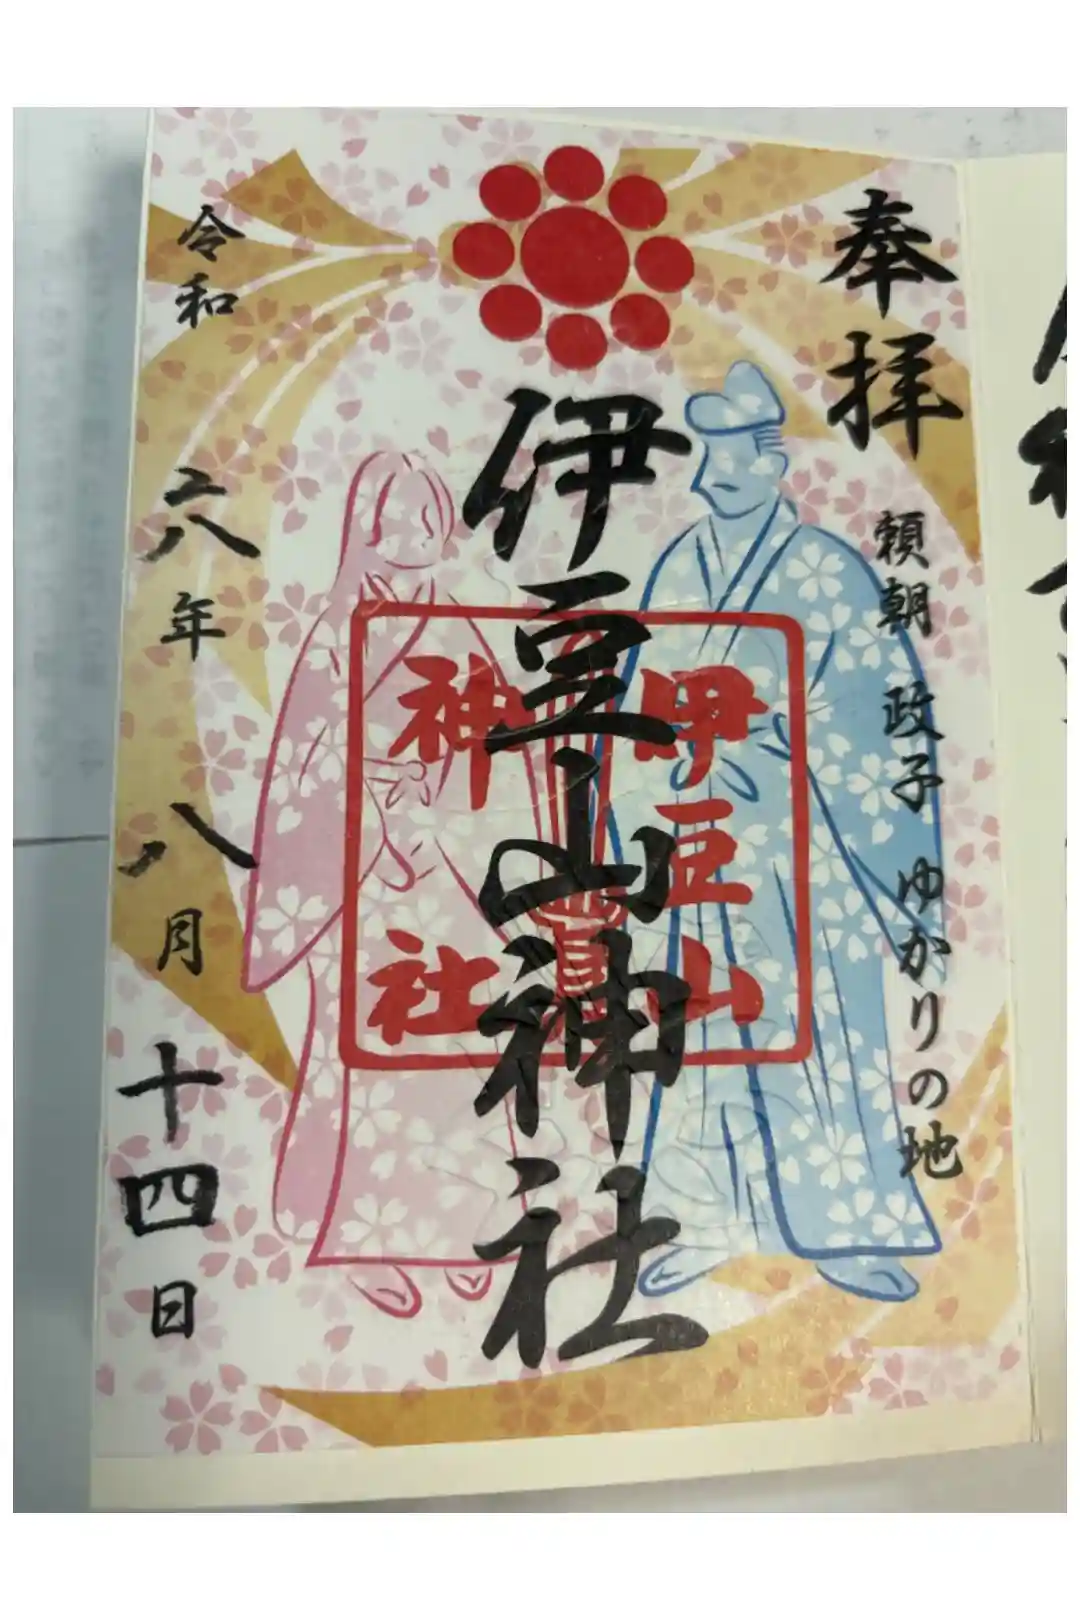 奉拝
頼朝 政子 ゆかりの地
伊豆山神社
伊豆山
神社
令和六年八月十四日